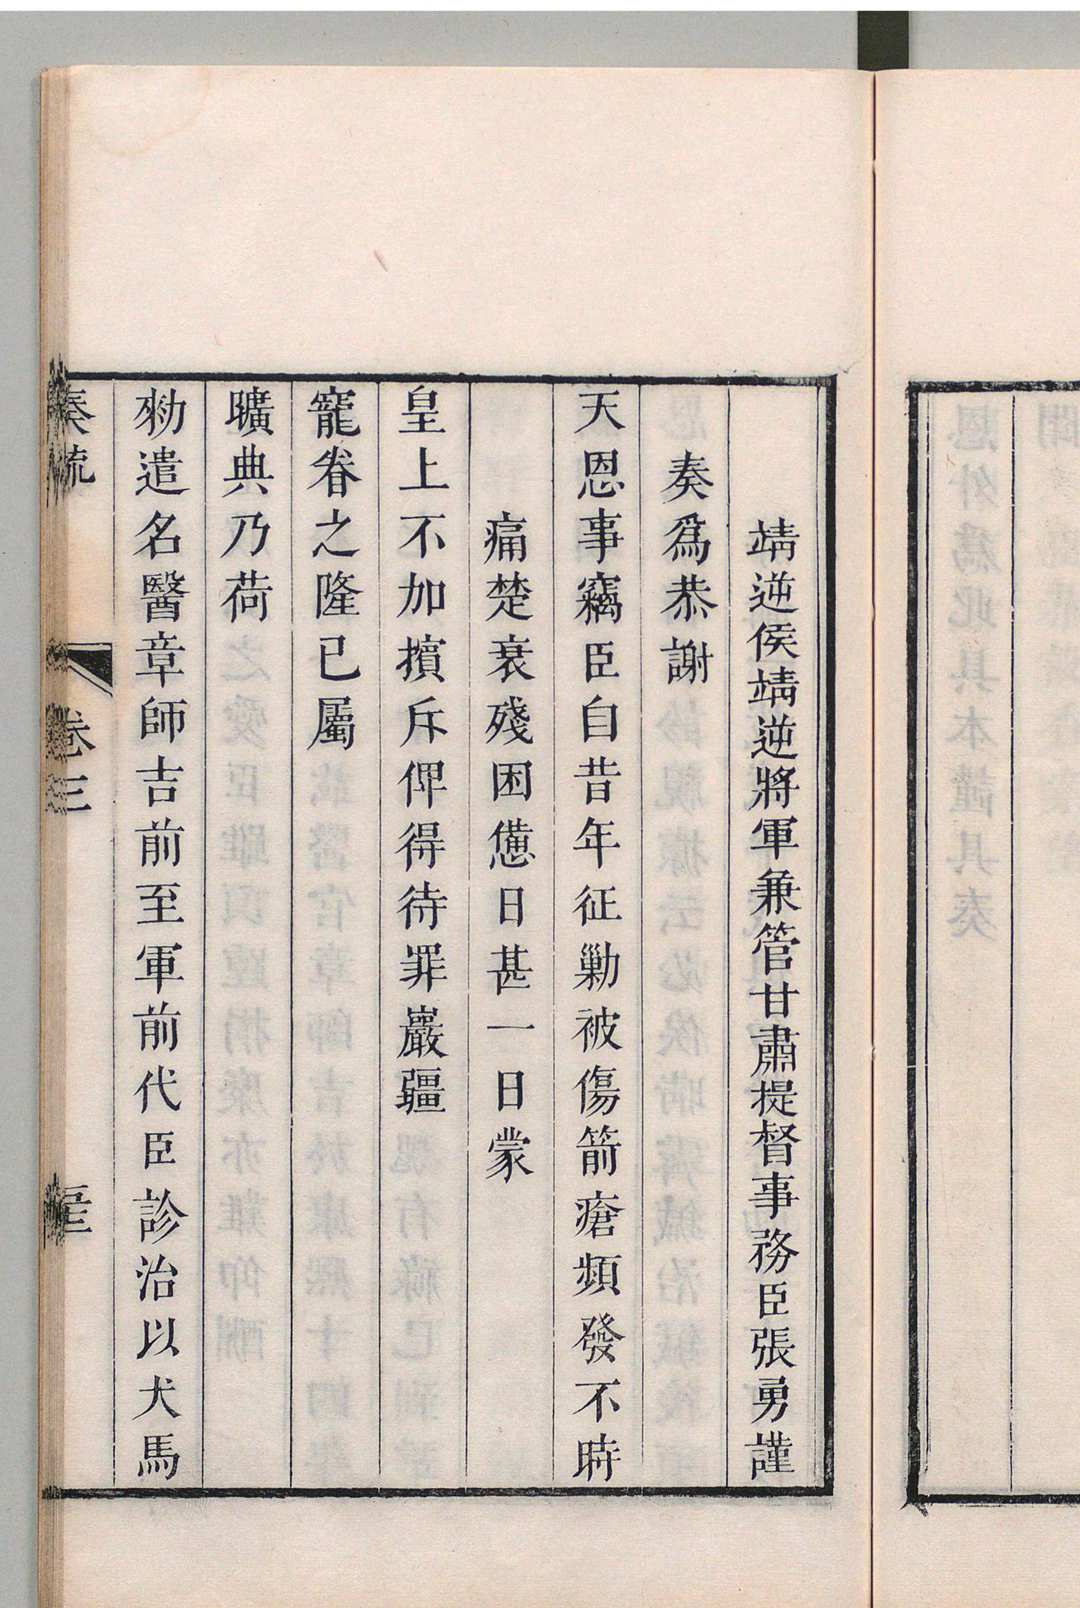 靖逆侯靖逆將軍兼管甘肅提督事務臣張勇謹
奏爲恭謝
天恩事竊臣自昔年征勦被傷箭瘡頻發不時
痛楚衰殘困憊日甚一日蒙
皇上不加擯斥俾得待罪巖疆
寵眷之隆已屬
曠典乃荷
勑遣名醫章師吉前至軍前代臣診治以犬馬
奏疏
卷三